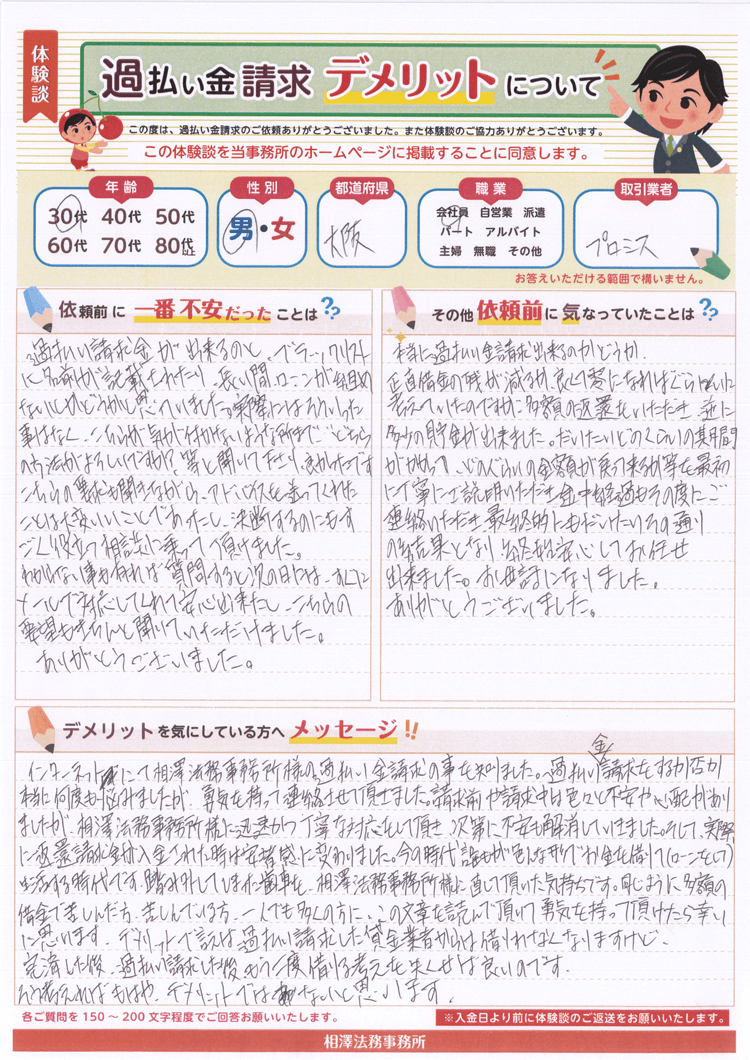 体験談
過払い金請求 デメリットについて
この度は、過払い金請求のご依頼ありがとうございました。また体験談のご協力ありがとうございます。
この体験談を当事務所のホームページに掲載することに同意します。
年齢
30代 40代 50代
60代 70代 80代以上
性別
男・女
都道府県
大阪
職業
会社員 自営業 派遣
パート アルバイト
主婦 無職 その他
取引業者
プロミス
お答えいただける範囲で構いません。
依頼前に 一番不安だった ことは??
過払い請求金が出来るのと。ブラックリスト
に名前が記載されたり、長い間、ローンが組め
ないとかどうかと思っていました。実際にはそういった
事はなく、こちらが気が付かないような所まで、どちら
の方法がよろしいですか?等と聞いて下さり、良かったです
こちらの要求も聞きながら、アドバイスを送ってくれた
ことは大変いいことであったし、決断するのにもす
ごく役立つ相談に乗って頂けました。
わからない事も有れば質問すると次の日には、すぐに
メールで対応してくれて安心出来たし、こちらの
要望もきちんと聞いていただけました。
ありがとうございました。
その他 依頼前に気なっていたことは??
本当に過払い金請求出来るのかどうか。
正直借金の時が減るか、良くて零になればぐらいに
考えていたのですが、多額の返還をいただき、逆に
多少の貯金が出来ました。だいたいどのくらいの期間
がかかって、どのぐらいの金額が戻って来るか等を最初
に丁寧にご説明いただき、途中経過もその度にご
連絡いただき、最終的にもだいたいその通り
の結果となり、始終安心してお任せ
出来ました。お世話になりました。
ありがとうございました。
デメリットを気にしている方へ メッセージ!!
インターネットにて相澤法務事務所様の過払い金請求の事を知りました。過払い金請求をするか否か
本当に何度も悩みましたが、勇気を持って連絡させて頂きました。請求前や請求中は色々と不安や心配があり
ましたが、相澤法務事務所様に迅速かつ丁寧な対応をして頂き、次第に不安も解消していきました。そして、実際
に返還請求金が入金された時は安堵感に変わりました。今の時代、誰もが色んな形でお金を借りて(ローンをして)
生活する時代です。踏み外していた歯車を、相澤法務事務所様に直して頂いた気持ちです。同じように多額の
借金で苦しんだ方、苦しんでいる方、一人でも多くの方に、この文章を読んで頂いて勇気を持って頂けたら幸い
に思います。デメリットで言えば過払い請求した貸金業者からは借りれなくなりますけど、
完済した後、過払い請求した後もう一度借りる考えを失くせば良いのです。
そう考えればもはや、デメリットではないと思います。
各ご質問を150~200文字程度でご回答お願いいたします。
※入金日より前に体験談のご返送をお願いいたします。
相澤法務事務所